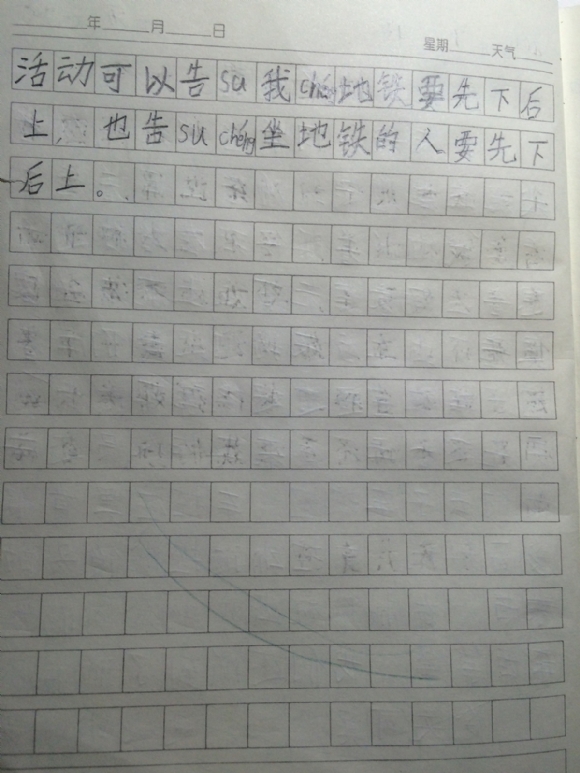 年 月 日
星期 天气
活动可以告su我chéng地铁要先下后
上，也告suchéng坐地铁的人要先下
后上。